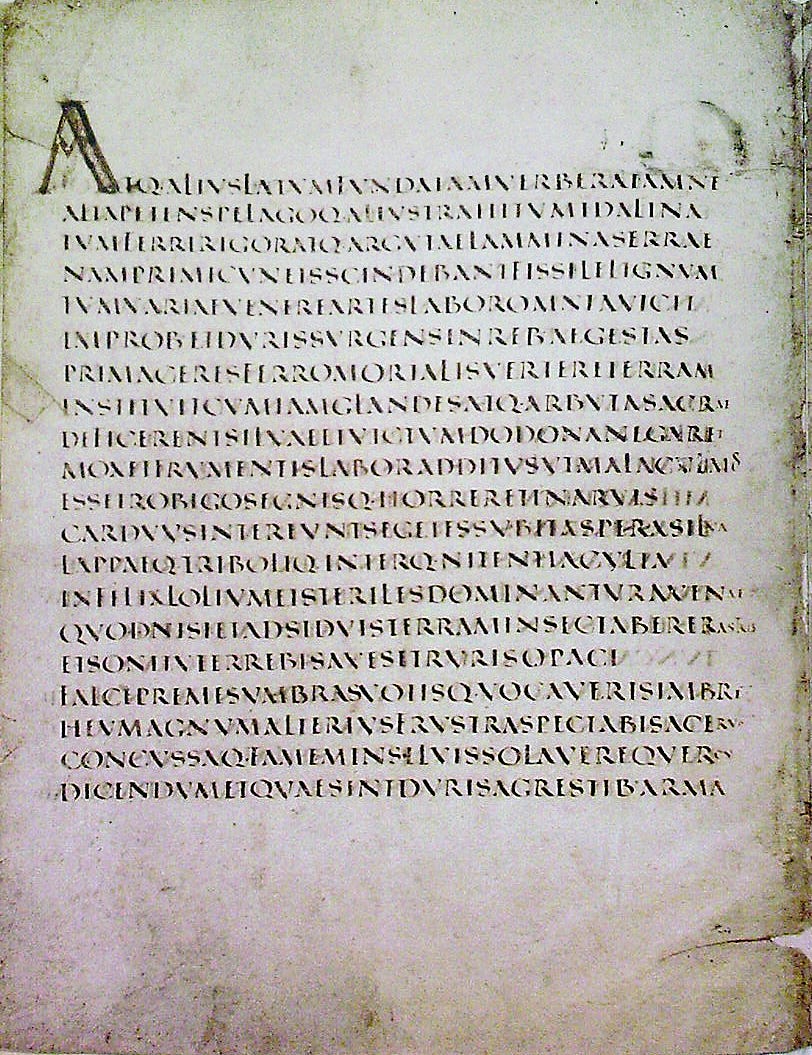 ATQALIVSLATVMFVNDAIAMVERBERATAMNE
ALTAPETENSPELAGOQALIVSTRAHITVMIDALINA
TVMFERRIRIGORATQARGVTAELAMMINASERRAE
NAMPRIMICVNEISSCINDEBANTFISSILELIGNVM
TVMVARIAEVENEREARTESLABOROMNIAVICIT
IMPROBETDVRISSVRGENSINREBAEGESTAS
PRIMACERESFERROMORTALISVERTERETERRAM
INSTITVITCVMIAMGLANDESATQ·ARBVTASACRAE
DEFICERENTSILVAEETVICTVMDODONANEGARET
MOXETFRVMENTISLABORADDITVSVTMALACVLMOS
ESSETROBIGOSEGNISQ·HORRERETINARVIS
CARDVVSINTEREVNTSEGETESSVBITASPERASILVA
LAPPAEQ·TRIBOLIQ·INTERQ·NITENTIACVLTA
INFELIXLOLIVMETSTERILESDOMINANTVRAVENAE
QVODNISIETADSIDVISTERRAMINSECTABERERASTRIS
ETSONITVTERREBISAVESETRVRISOPACI
FALCEPREMESVMBRASVOTISQ·VOCAVERISIMBRE
HEVMAGNVMALTERIVSFRVSTRASPECTABISACERV
CONCVSSAQ·FAMEMINSILVISSOLAVEREQVERCV
DICENDVMETQVAESINTDVRISAGRESTIB·ARMA